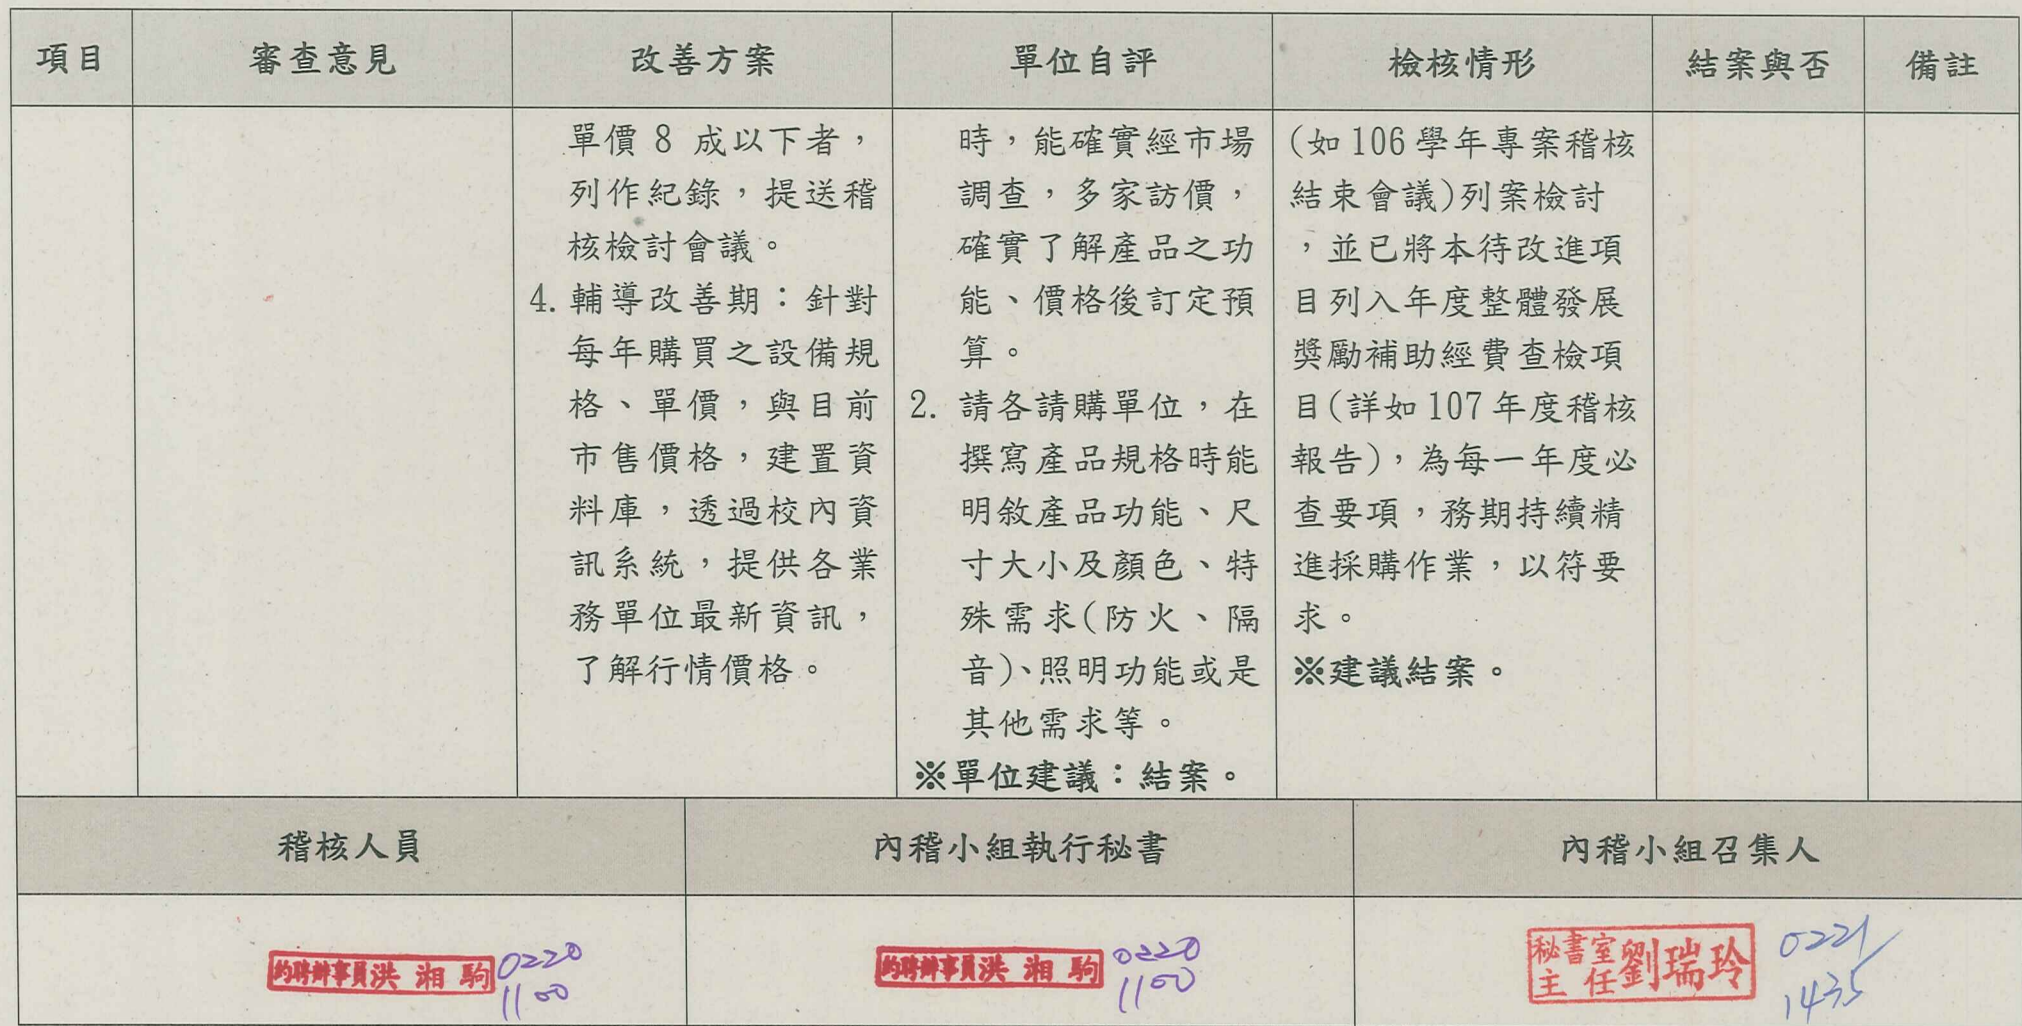 項目
審查意見
改善方案
單位自評
檢核情形
結案與否
備註
單價 8 成以下者，
列作紀錄，提送稽
核檢討會議。
4. 輔導改善期：針對
每年購買之設備規
格、單價，與目前
市售價格，建置資
料庫，透過校內資
訊系統，提供各業
務單位最新資訊，
了解行情價格。
時，能確實經市場
調查，多家訪價，
確實了解產品之功
能、價格後訂定預
算。
2. 請各請購單位，在
撰寫產品規格時能
明敘產品功能、尺
寸大小及顏色、特
殊需求(防火、隔
音)、照明功能或是
其他需求等。
※單位建議：結案。
(如 106 學年專案稽核
結束會議)列案檢討
，並已將本待改進項
目列入年度整體發展
獎勵補助經費查檢項
目(詳如 107 年度稽核
報告)，為每一年度必
查要項，務期持續精
進採購作業，以符要
求。
※建議結案。
稽核人員
內稽小組執行秘書
內稽小組召集人
約聘辦事員洪湘駒
0220
1100
約聘辦事員洪湘駒
0220
1100
秘書室
主任
劉瑞玲
0221
1435